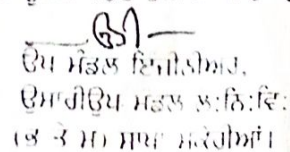 ਉਪ ਮੰਡਲ ਇੰਜੀਨੀਅਰ,
ਉਸਾਰੀ ਉਪ ਮੰਡਲ ਲ:ਨਿ:ਵਿ:
(ਭ ਤੇ ਮ) ਸ਼ਾਖਾ